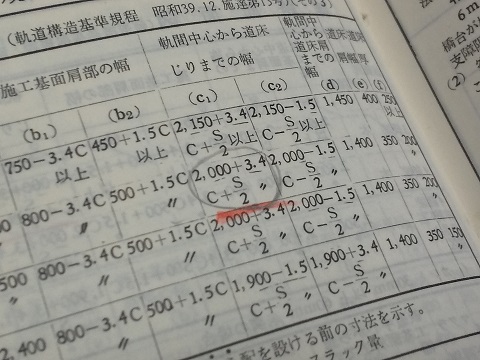 (軌道構造基準規程 昭和39.12.施達第13号
施工基面肩部の幅
軌間中心から道床
じりまでの幅
軌間中
心から
道床肩
までの
幅
道床
肩幅
道床
厚
(b₁) (b₂) (c₁) (c₂) (d) (e) (f)
750－3.4C
以上
450＋1.5C
以上
2,150＋3.4
C＋S/2以上
2,150－1.5
C－S/2以上
1,450 400 250
以上
800－3.4C
〃
500＋1.5C
〃
2,000＋3.4
C＋S/2〃
2,000－1.5
C－S/2〃
1,400 350 200
〃
500
〃
800－3.4C
〃
500＋1.5C
〃
2,000＋3.4
C＋S/2〃
2,000－1.5
C－S/2〃
1,400 350 200
〃
2,400
800－3.4C
〃
500＋1.5C
〃
1,900－1.5
C－S/2〃
1,900＋3.4
C－S/2〃
1,400 350 150
〃
配を設ける前の寸法を示す。
ラック量
6m
橋台が
支障
(2)